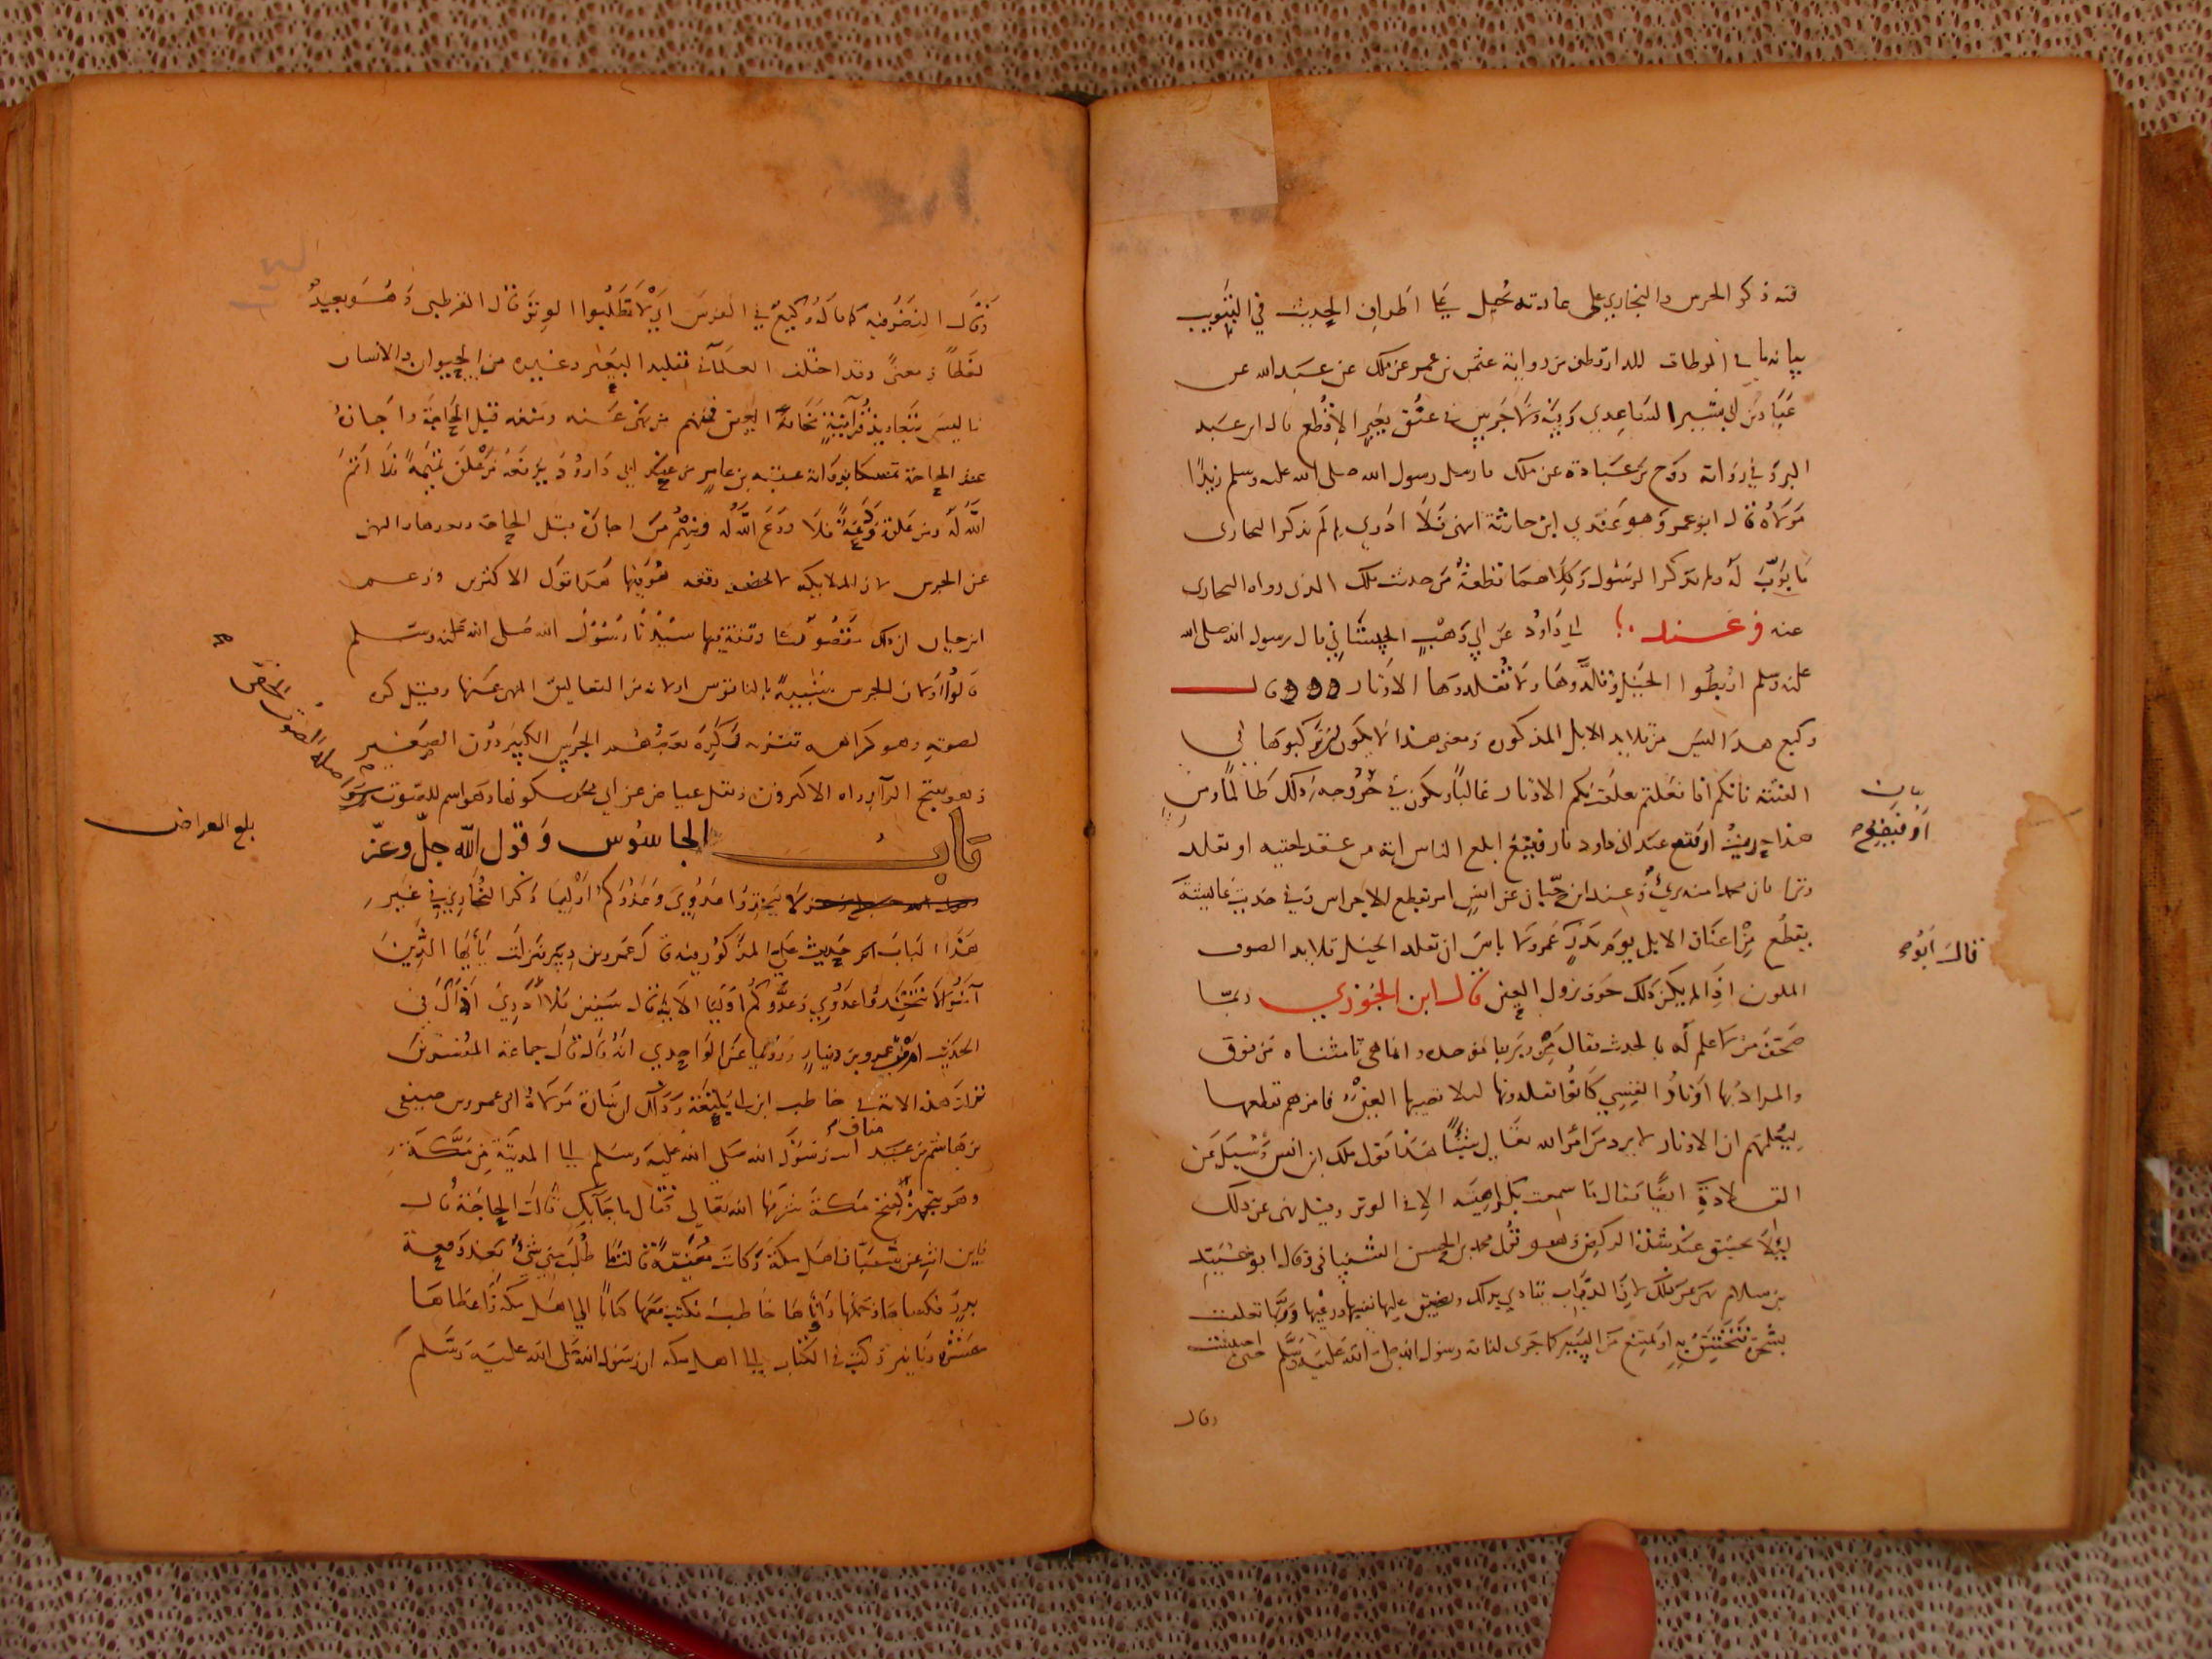 فيه ذكر الجرس والبخاري على عادته يحيل على أطراف الحديث في التبويب
بيانه ما في الموطات للدارقطني من رواية عثمن بن عمر عن ملك عن عبد الله عن
عباد بن أبي بشير الساعدي وفيه ولا جرس في عنق بعير إلا قطع قال ابن عبد
البر وفي رواية روح بن عبادة عن ملك فارسل رسول الله صلى الله عليه وسلم زيدا
مولاه قال ابو عمر وهو عندي ابن حارثة انتهى فلا ادري لم لم يذكر البخاري
ما بوب له ولم يذكر الرسول وكلاهما قطعة من حديث ملك الذي رواه البخاري
عنه وعند ابي داود عن ابي وهب الجشماني قال رسول الله صلى الله
عليه وسلم اربطوا الخيل وقلدوها ولا تقلدوها الاوتار ووو قال
وكيع هذا ليس من قلايد الابل المذكورة ومعنى هذا لا يكون لم تركبوها في
الفتنة فانكم اذا فعلتم تعلق بكم الاوتار غالبا ويكون في خروجه ذلك ظالما ومن
هذا حديث رويفع عند ابي داود يا رويفع ابلغ الناس انه من عقد لحيته او تقلد
وترا فان محمدا منه بريء وعند ابن حبان عن انس امر بقطع الاجراس وفي حديث عايشة
بقطع من اعناق الابل يوم بدر عمر ولا باس ان تقلد الخيل قلايد الصوف
الملون اذا لم يكن ذلك خوف نزول العين قال ابن الجوزي ربما
صحف من لا علم له بالحديث فقال من وبر بباء موحدة وانما هي تا مثناه من فوق
والمراد بها اوتار القسي كانوا يقلدونها ليلا تصيبها العين فامرهم بقطعها
ليعلمهم ان الاوتار لا يرد من امر الله تعالى شيئا هذا قول ملك ابن انس وسيل عن
القلادة ايضا فقال ما سمعت بكراهيته الا في الوتر وقيل نهى عن ذلك
ليلا تختنق عند شدة الركض وهو قول محمد بن الحسن الشيباني وقال ابو عبيد
بن سلام نهى عن ذلك لان الدواب تتاذى بذلك ويضيق عليها نفسها ورعيها وربما تعلقت
بشجرة فتختنق به او تمتنع من السير كما جرى لناقة رسول الله صلى الله عليه وسلم حين احبست
وقال
قال ابو
وقال النضر فيه كما قال وكيع في الفرس اي لا تطلبوا الوتر قال القرطبي وهو بعيد
لفظا ومعنى وقد اختلف العلماء في تقليد البعير وغيره من الحيوان والانسان
ما ليس بتعاويذ قرآنية مخافة العين فمنهم من نهى عنه ومنعه قبل الحاجة واجازه
عند الحاجة تمسكا برواية عقبة بن عامر عند ابي داود يرفعه من علق تميمة فلا اتم
الله له ومن علق ودعة فلا ودع الله له ومنهم من اجاز قبل الحاجة وبعدها والنهي
عن الجرس لان الملايكة لا تحضر رفقة هو فيها هذا قول الاكثرين وزعم
ابن حبان ان ذلك مقصور على رفقة فيها سيدنا رسول الله صلى الله عليه وسلم
قالوا ولان للجرس تشبيها بالناقوس او لانه من التعاليق المنهى عنها وقيل كره
لصوته وهو كراهة تنزيه وكره بعضهم الجرس الكبير دون الصغير
وهو بفتح الراء رواه الاكثرون ونقل عياض عن ابي بحر سكونها وهو اسم للصوت
بلغ العراض
باب الجاسوس وقول الله جل وعز
لا تتخذوا عدوي وعدوكم اولياء ذكر البخاري في غير
هذا الباب اخر حديث علي المذكور فيه قال عمرو بن دينر نزلت يا أيها الذين
آمنوا لا تتخذوا عدوي وعدوكم اولياء الاية قال سفين فلا أدري أذاك في
الحديث ام قول عمرو بن دينار وزعم عن الواحدي انه قال جماعة المفسرين
نزلت هذه الاية في حاطب ابن ابي بلتعة وذلك ان سارة مولاة ابي عمرو بن صيفي
بن هاشم بن عبد مناف اتت رسول الله صلى الله عليه وسلم الى المدينة من مكة
وهو يتجهز لفتح مكة شرفها الله تعالى فقال ما جاء بك قالت الحاجة قال
فاين انت عن شباب اهل مكة وكانت مغنية قالت ما طلب مني شيء بعد وقعة
بدر فكساها وحملها واتاها حاطب فكتب معها كتابا الى اهل مكة واعطاها
عشرة دنانير وكتب في الكتاب الى اهل مكة ان رسول الله صلى الله عليه وسلم